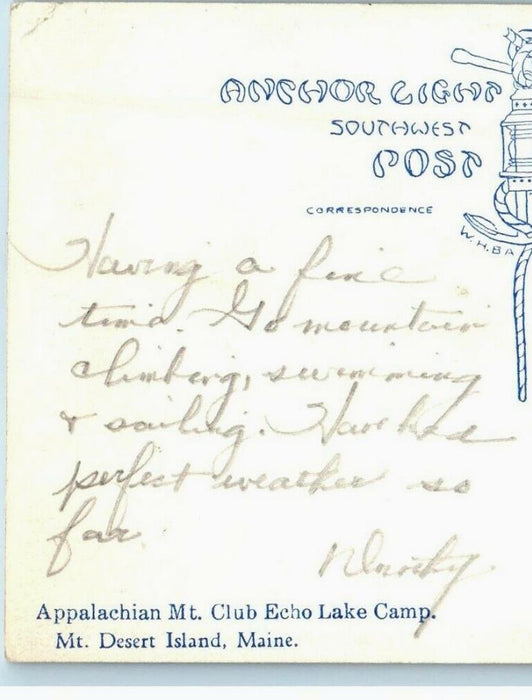 ANCHOR LIGHT
SOUTHWEST
POST
CORRESPONDENCE
W.H.BA
Having a fine
time. Go mountain
climbing, swimming
& sailing. Have had
perfect weather so
far.
Dorothy
Appalachian Mt. Club Echo Lake Camp.
Mt. Desert Island, Maine.